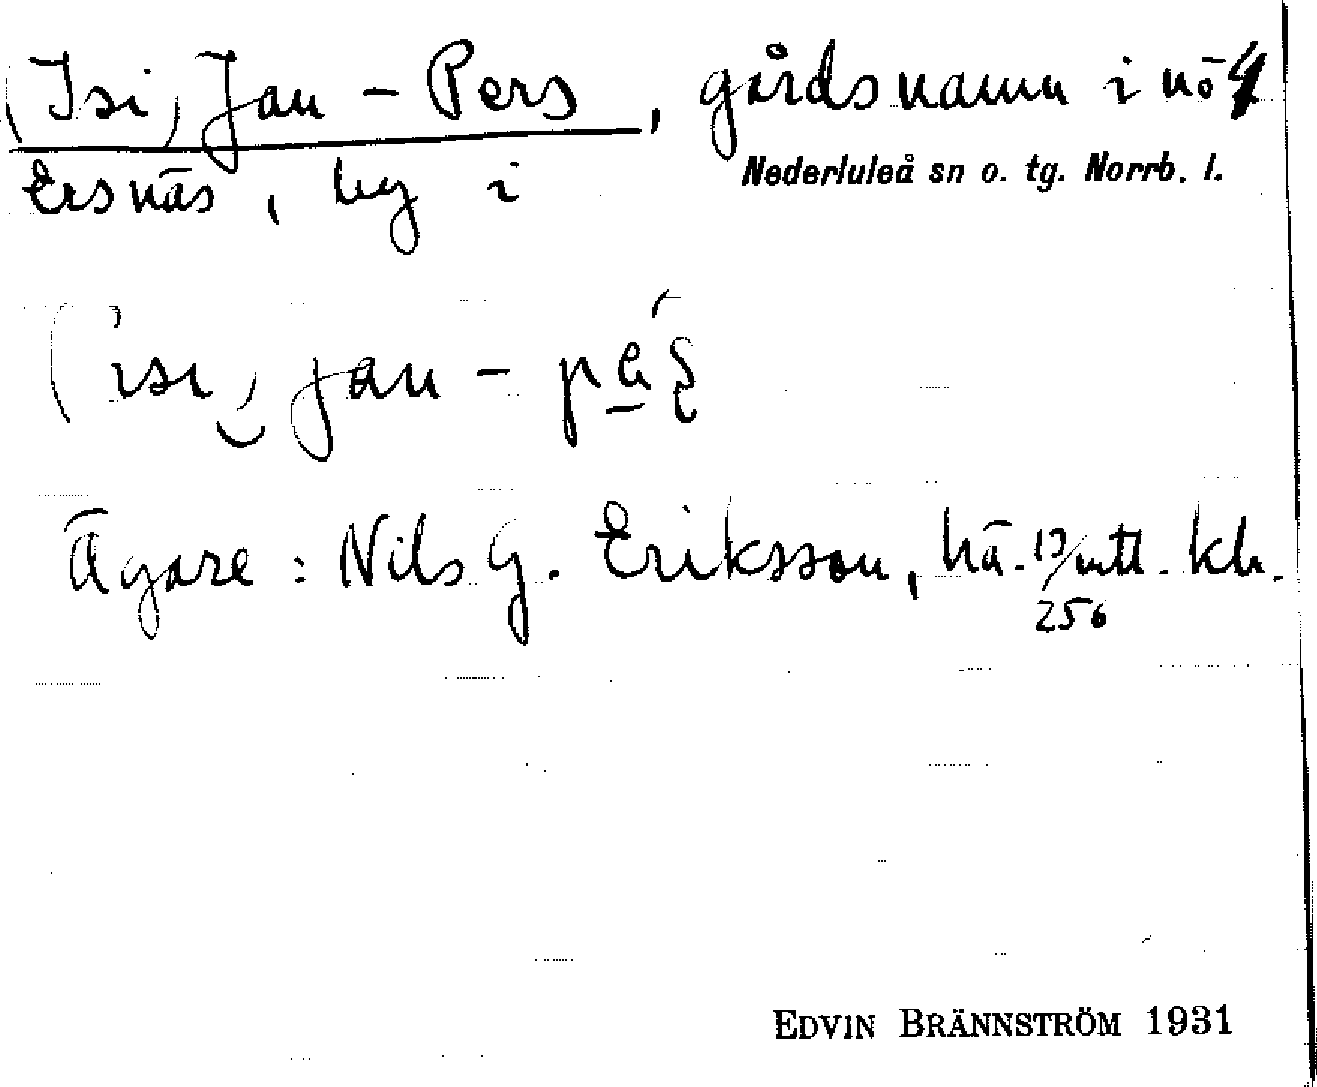 (Isi) Jan-Pers, gårdsnamn i nö 4
Ersnäs, by i Nederluleå sn o. tg. Norrb. l.
(isi) jan-
Ägare: Nils G. Eriksson, hä. 13/256 mtl. kr.
EDVIN BRÄNNSTRÖM 1931